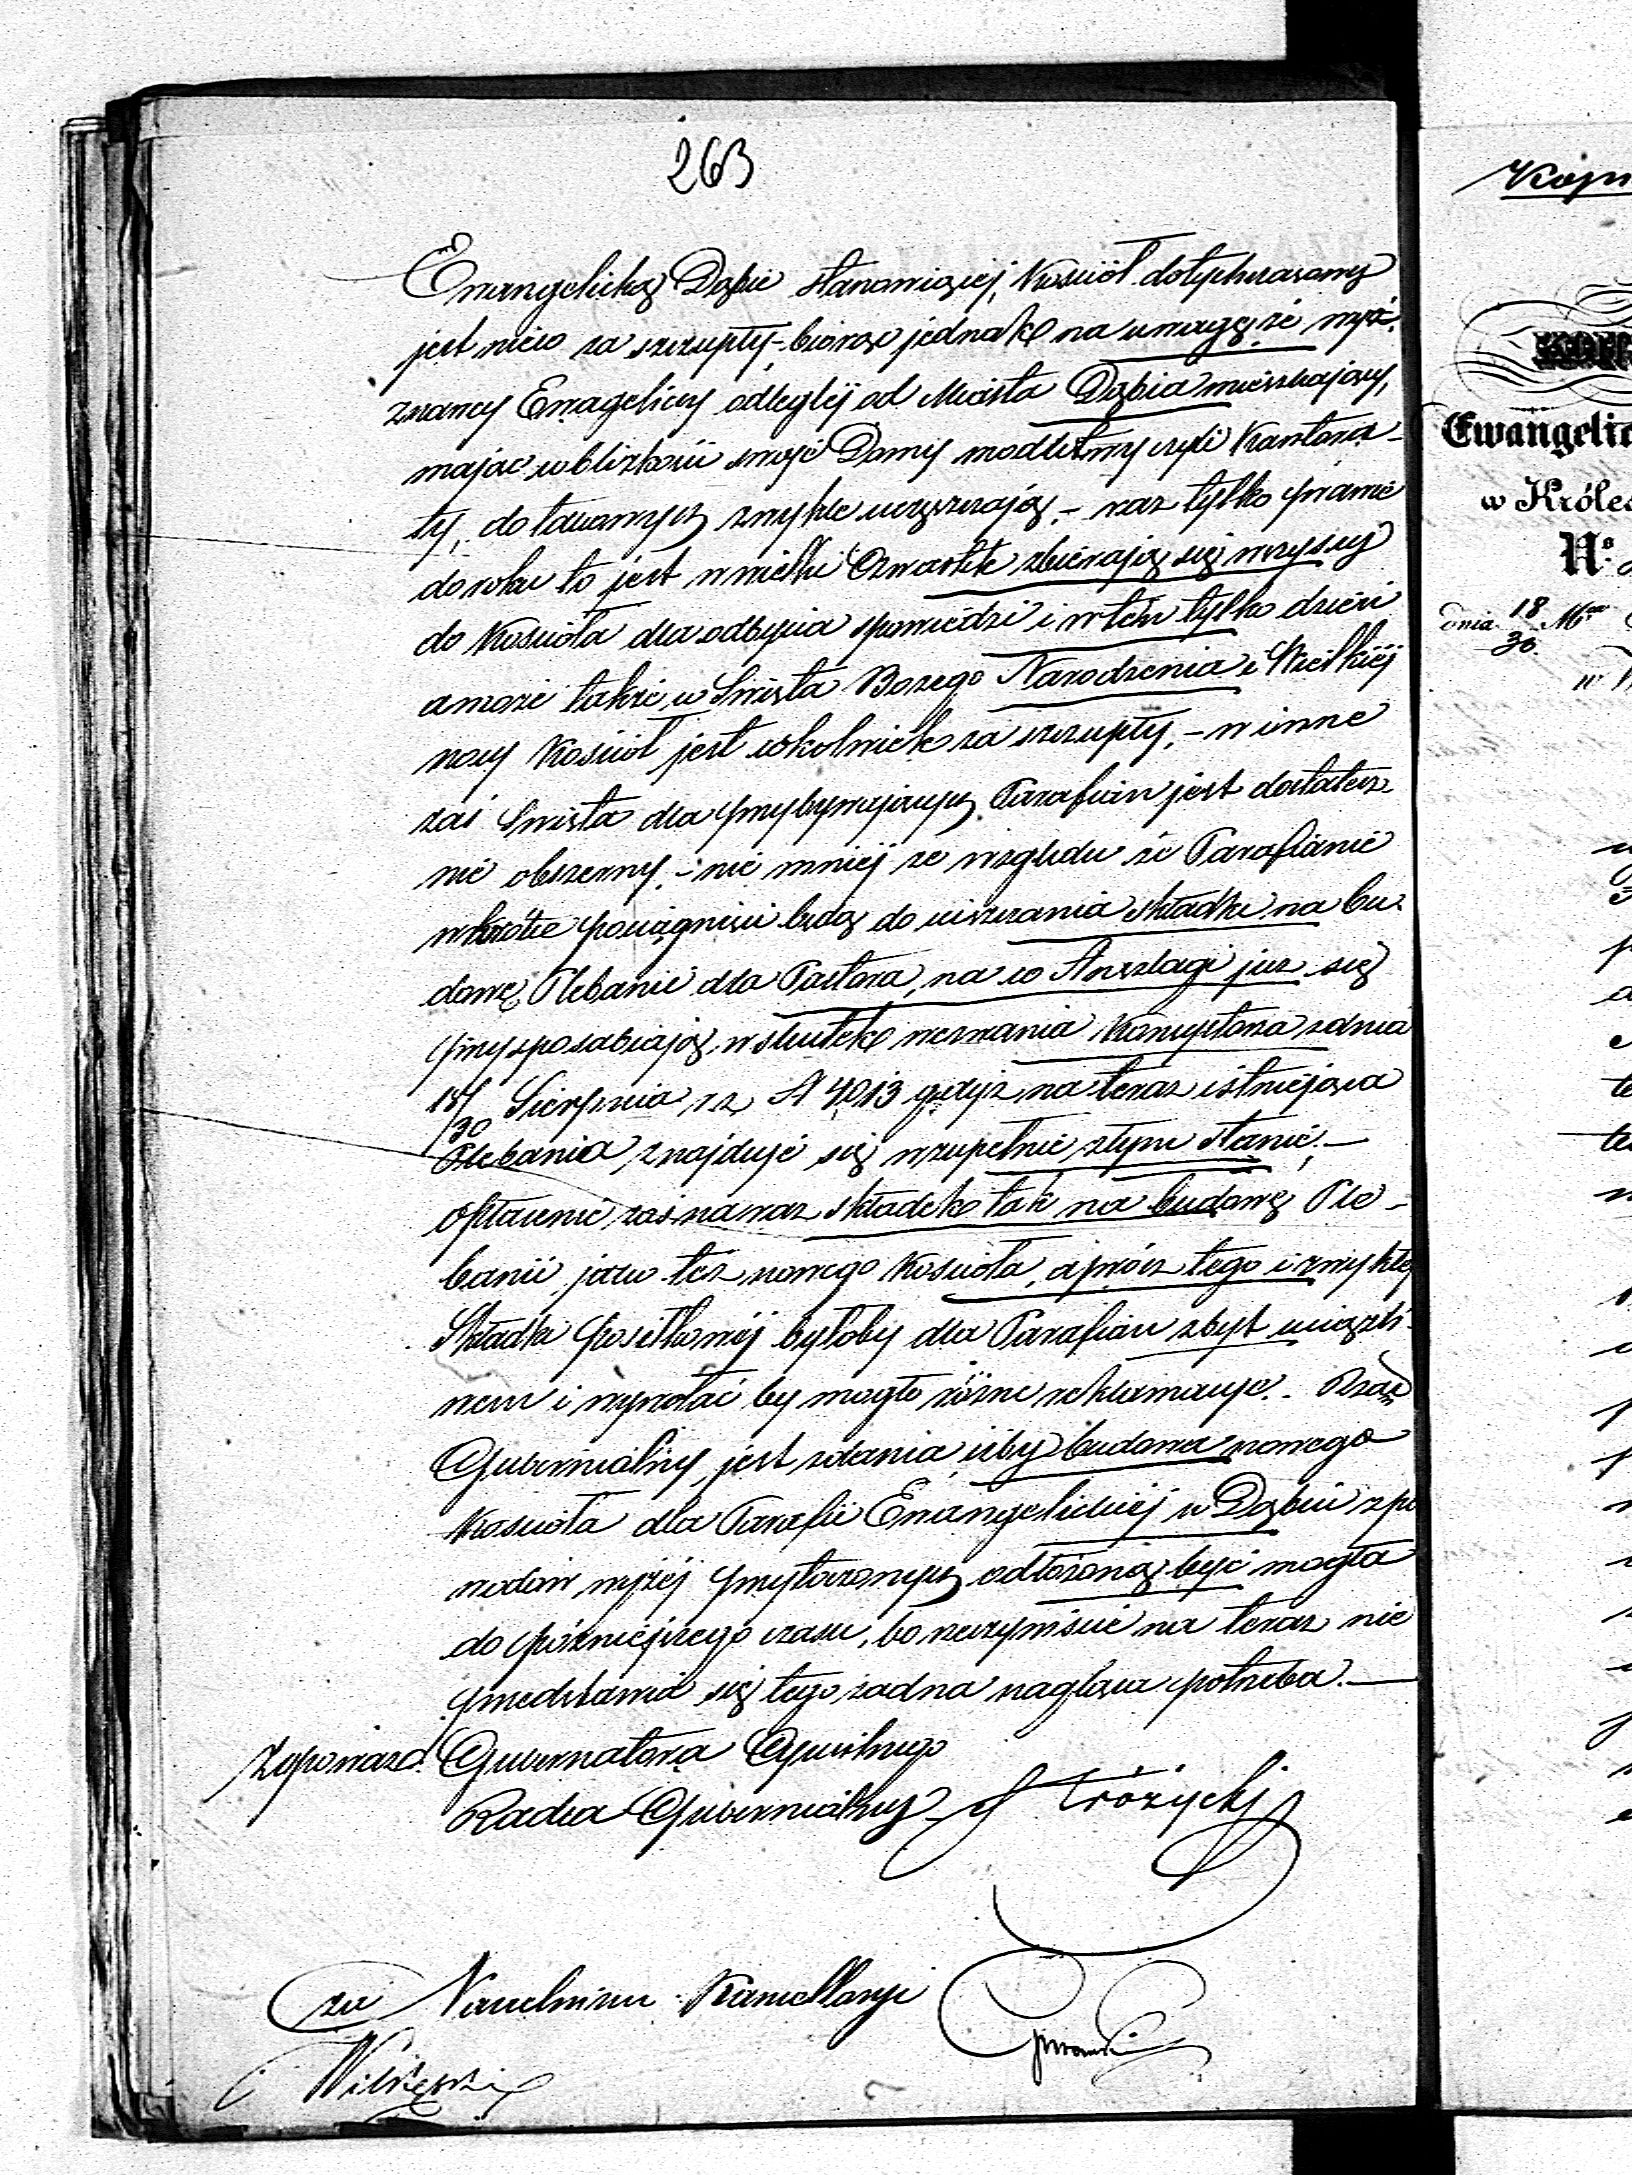 263
Ewangelicką Dąbie stanowiącej, Kościół dotychczasowy
jest nieco za szczupły, – biorąc jednak na uwagę, że wyż-
znawcy Ewagelicy odleglej od Miasta Dąbia mieszkający,
mając w blizkości swoje Domy modlitwy czyli Kantora-
ty, do takowych zwykle uczęszczają, – raz tylko prawie
do roku to jest w wielki Czwartek zbierają się wszyscy
do Kościoła dla odbycia spowiedzi i w ten tylko dzień
a może także w Święta Bożego Narodzenia i Wielkiéj
nocy Kościół jest cokolwiek za szczupły, – w inne
zaś Święta dla przybywających Parafian jest dostatecz-
nie obszerny, – nie mniéj ze względu że Parafianie
wkrótce pociągnięci będą do uiszczania składki na bu-
dowę Plebanii dla Pastora, na co Anszlagi już się
przysposabiają, w skutek wezwania Konsystorza z dnia
18/30 Sierpnia r.z. N 4013 gdyż na teraz istniejąca
Plebania, znajduje się w zupełnie złym stanie. —
Opłacenie zaś naraz składek tak na budowę Ple-
banii jako też nowego Kościoła, oprócz tego i zwykłej
Składki posiłkowéj byłoby dla Parafian zbyt uciążli-
wem i wywołać by mogło różne reklamacje. – Rząd
Gubernialny, jest zdania, iżby budowa nowego
Kościoła dla Parafii Ewangelickiéj w Dąbiu z po
wodów wyżéj przytoczonych odłożoną być mogła
do późniejszego czasu, bo rzeczywiście na teraz nie
przedstawia się tego żadna nagląca potrzeba. —
Z upoważ. Gubernatora Cywilnego
Radca Gubernialny Różycki
za Naczelnika Kancellaryi
Kopi
Ewangelic
w Króles
N°
dnia 18/30 M
w W